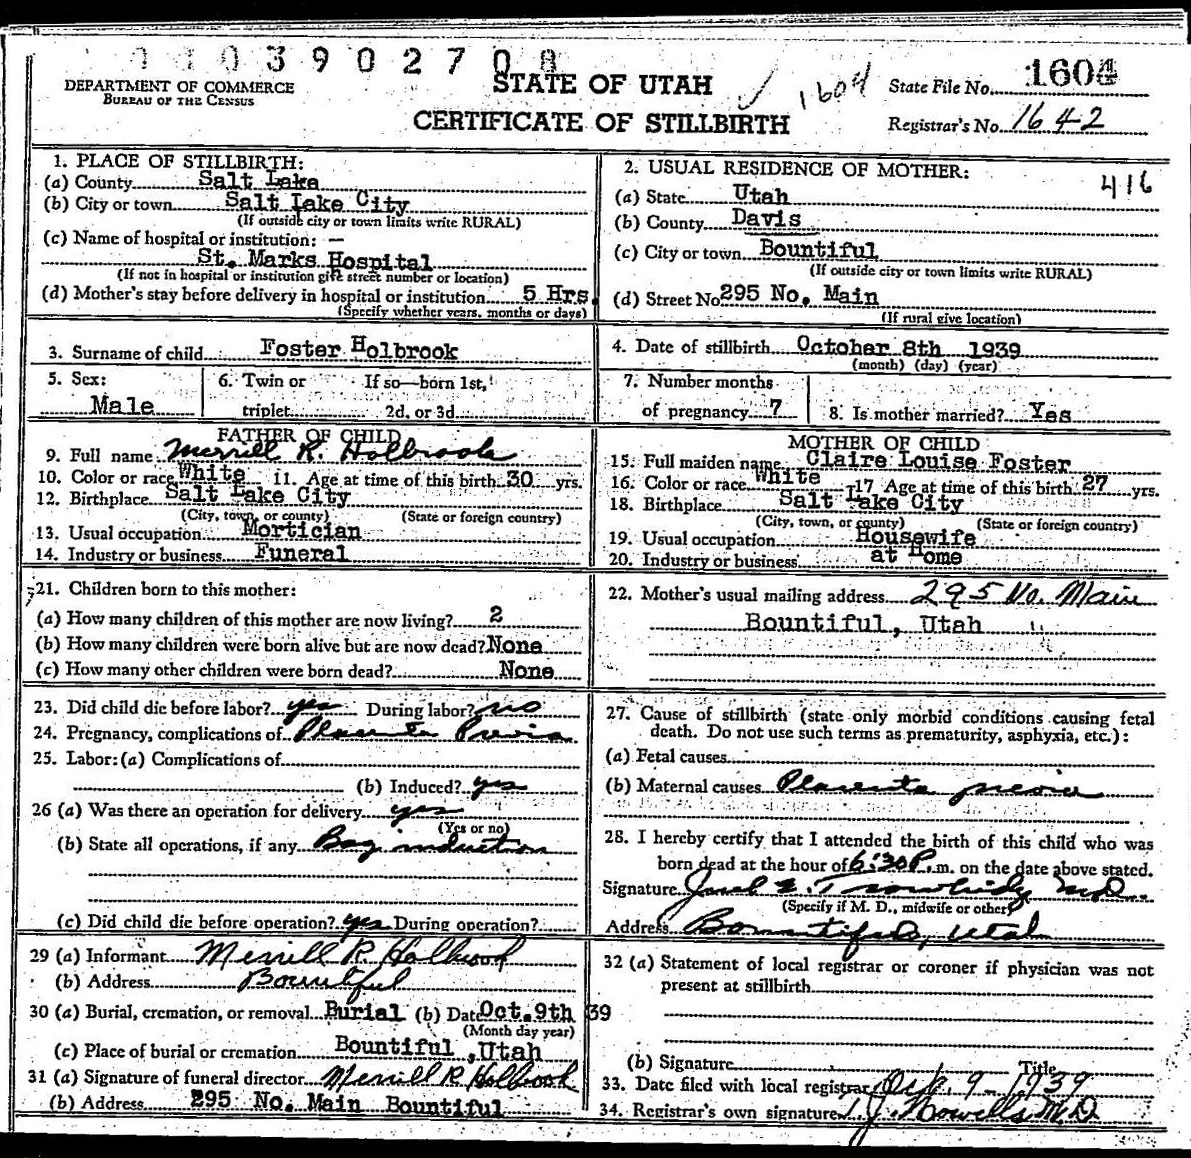 0 1 0 3 9 0 2 7 0 8
DEPARTMENT OF COMMERCE
BUREAU OF THE CENSUS
STATE OF UTAH
CERTIFICATE OF STILLBIRTH
1604
State File No. 1604
Registrar's No. 1642
1. PLACE OF STILLBIRTH:
(a) County Salt Lake
(b) City or town Salt Lake City
(If outside city or town limits write RURAL)
(c) Name of hospital or institution: —
St. Marks Hospital
(If not in hospital or institution give street number or location)
(d) Mother's stay before delivery in hospital or institution 5 Hrs.
(Specify whether years, months or days)
2. USUAL RESIDENCE OF MOTHER:
416
(a) State Utah
(b) County Davis
(c) City or town Bountiful
(If outside city or town limits write RURAL)
(d) Street No. 295 No. Main
(If rural give location)
3. Surname of child Foster Holbrook
4. Date of stillbirth October 8th 1939
(month) (day) (year)
5. Sex:
Male
6. Twin or If so—born 1st,
triplet 2d, or 3d
7. Number months
of pregnancy 7
8. Is mother married? Yes
FATHER OF CHILD
9. Full name Merrill R. Holbrook
10. Color or race White 11. Age at time of this birth 30 yrs.
12. Birthplace Salt Lake City
(City, town, or county) (State or foreign country)
13. Usual occupation Mortician
14. Industry or business Funeral
MOTHER OF CHILD
15. Full maiden name Claire Louise Foster
16. Color or race White 17 Age at time of this birth 27 yrs.
18. Birthplace Salt Lake City
(City, town, or county) (State or foreign country)
19. Usual occupation Housewife
20. Industry or business at Home
21. Children born to this mother:
(a) How many children of this mother are now living? 2
(b) How many children were born alive but are now dead? None
(c) How many other children were born dead? None
22. Mother's usual mailing address 295 No. Main
Bountiful, Utah
23. Did child die before labor? yes During labor? no
24. Pregnancy, complications of Placenta Previa
25. Labor: (a) Complications of
(b) Induced? yes
26 (a) Was there an operation for delivery yes
(Yes or no)
(b) State all operations, if any Bag induction
(c) Did child die before operation? yes During operation?
27. Cause of stillbirth (state only morbid conditions causing fetal
death. Do not use such terms as prematurity, asphyxia, etc.):
(a) Fetal causes
(b) Maternal causes Placenta previa
28. I hereby certify that I attended the birth of this child who was
born dead at the hour of 6:30 P.m. on the date above stated.
Signature Trowbridge M.D.
(Specify if M. D., midwife or other)
Address Bountiful, Utah
29 (a) Informant Merrill R. Holbrook
(b) Address Bountiful
30 (a) Burial, cremation, or removal Burial (b) Date Oct. 9th 39
(Month day year)
(c) Place of burial or cremation Bountiful, Utah
31 (a) Signature of funeral director Merrill R. Holbrook
(b) Address 295 No. Main Bountiful
32 (a) Statement of local registrar or coroner if physician was not
present at stillbirth
(b) Signature Title
33. Date filed with local registrar Oct. 9 - 1939
34. Registrar's own signature T. J. Howells M.D.